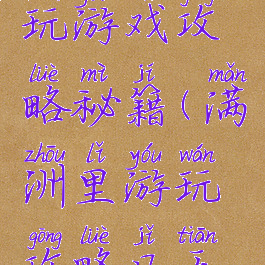 玩游戏攻
lüè mì jí mǎn
略秘籍(满
zhōu lǐ yóu wán
洲里游玩
gōng lüè jǐ tiān
攻略几天